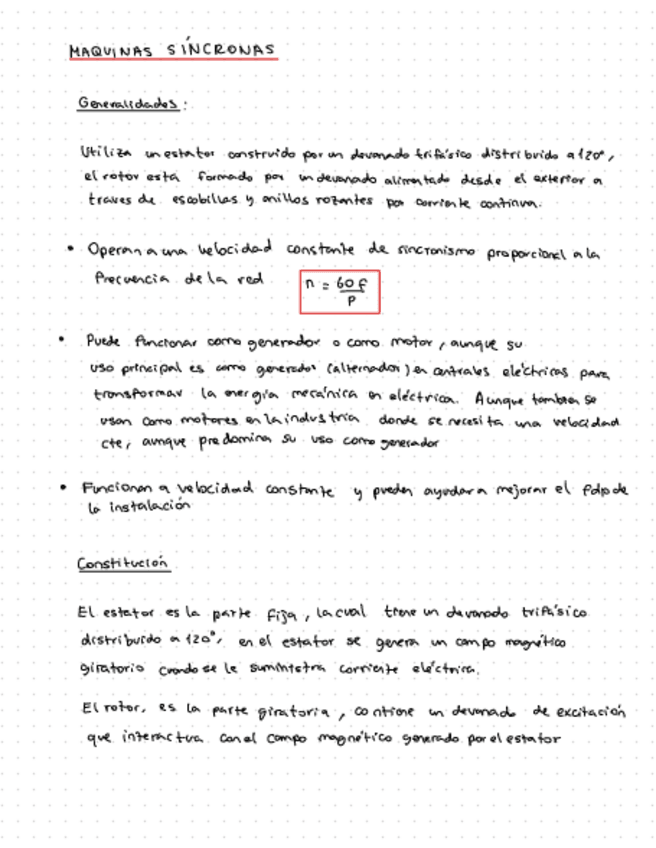 MAQUINAS SÍNCRONAS
Generalidades:
Utiliza un estator construido por un devanado trifásico distribuido a 120°,
el rotor está formado por un devanado alimentado desde el exterior a
traves de escobillas y anillos rozantes por corriente continua.
• Operan a una velocidad constante de sincronismo proporcional a la
frecuencia de la red n = 60 f / P
• Puede funcionar como generador o como motor, aunque su
uso principal es como generador (alternador) en centrales eléctricas para
transformar la energía mecánica en eléctrica. Aunque tambien se
usan como motores en la industria donde se necesita una velocidad
cte, aunque predomina su uso como generador
• Funcionan a velocidad constante y pueden ayudar a mejorar el fdp de
la instalación
Constitución
El estator es la parte fija, la cual tiene un devanado trifásico
distribuido a 120°, en el estator se genera un campo magnético
giratorio cuando se le suministra corriente eléctrica.
El rotor, es la parte giratoria, contiene un devanado de excitación
que interactua con el campo magnético generado por el estator